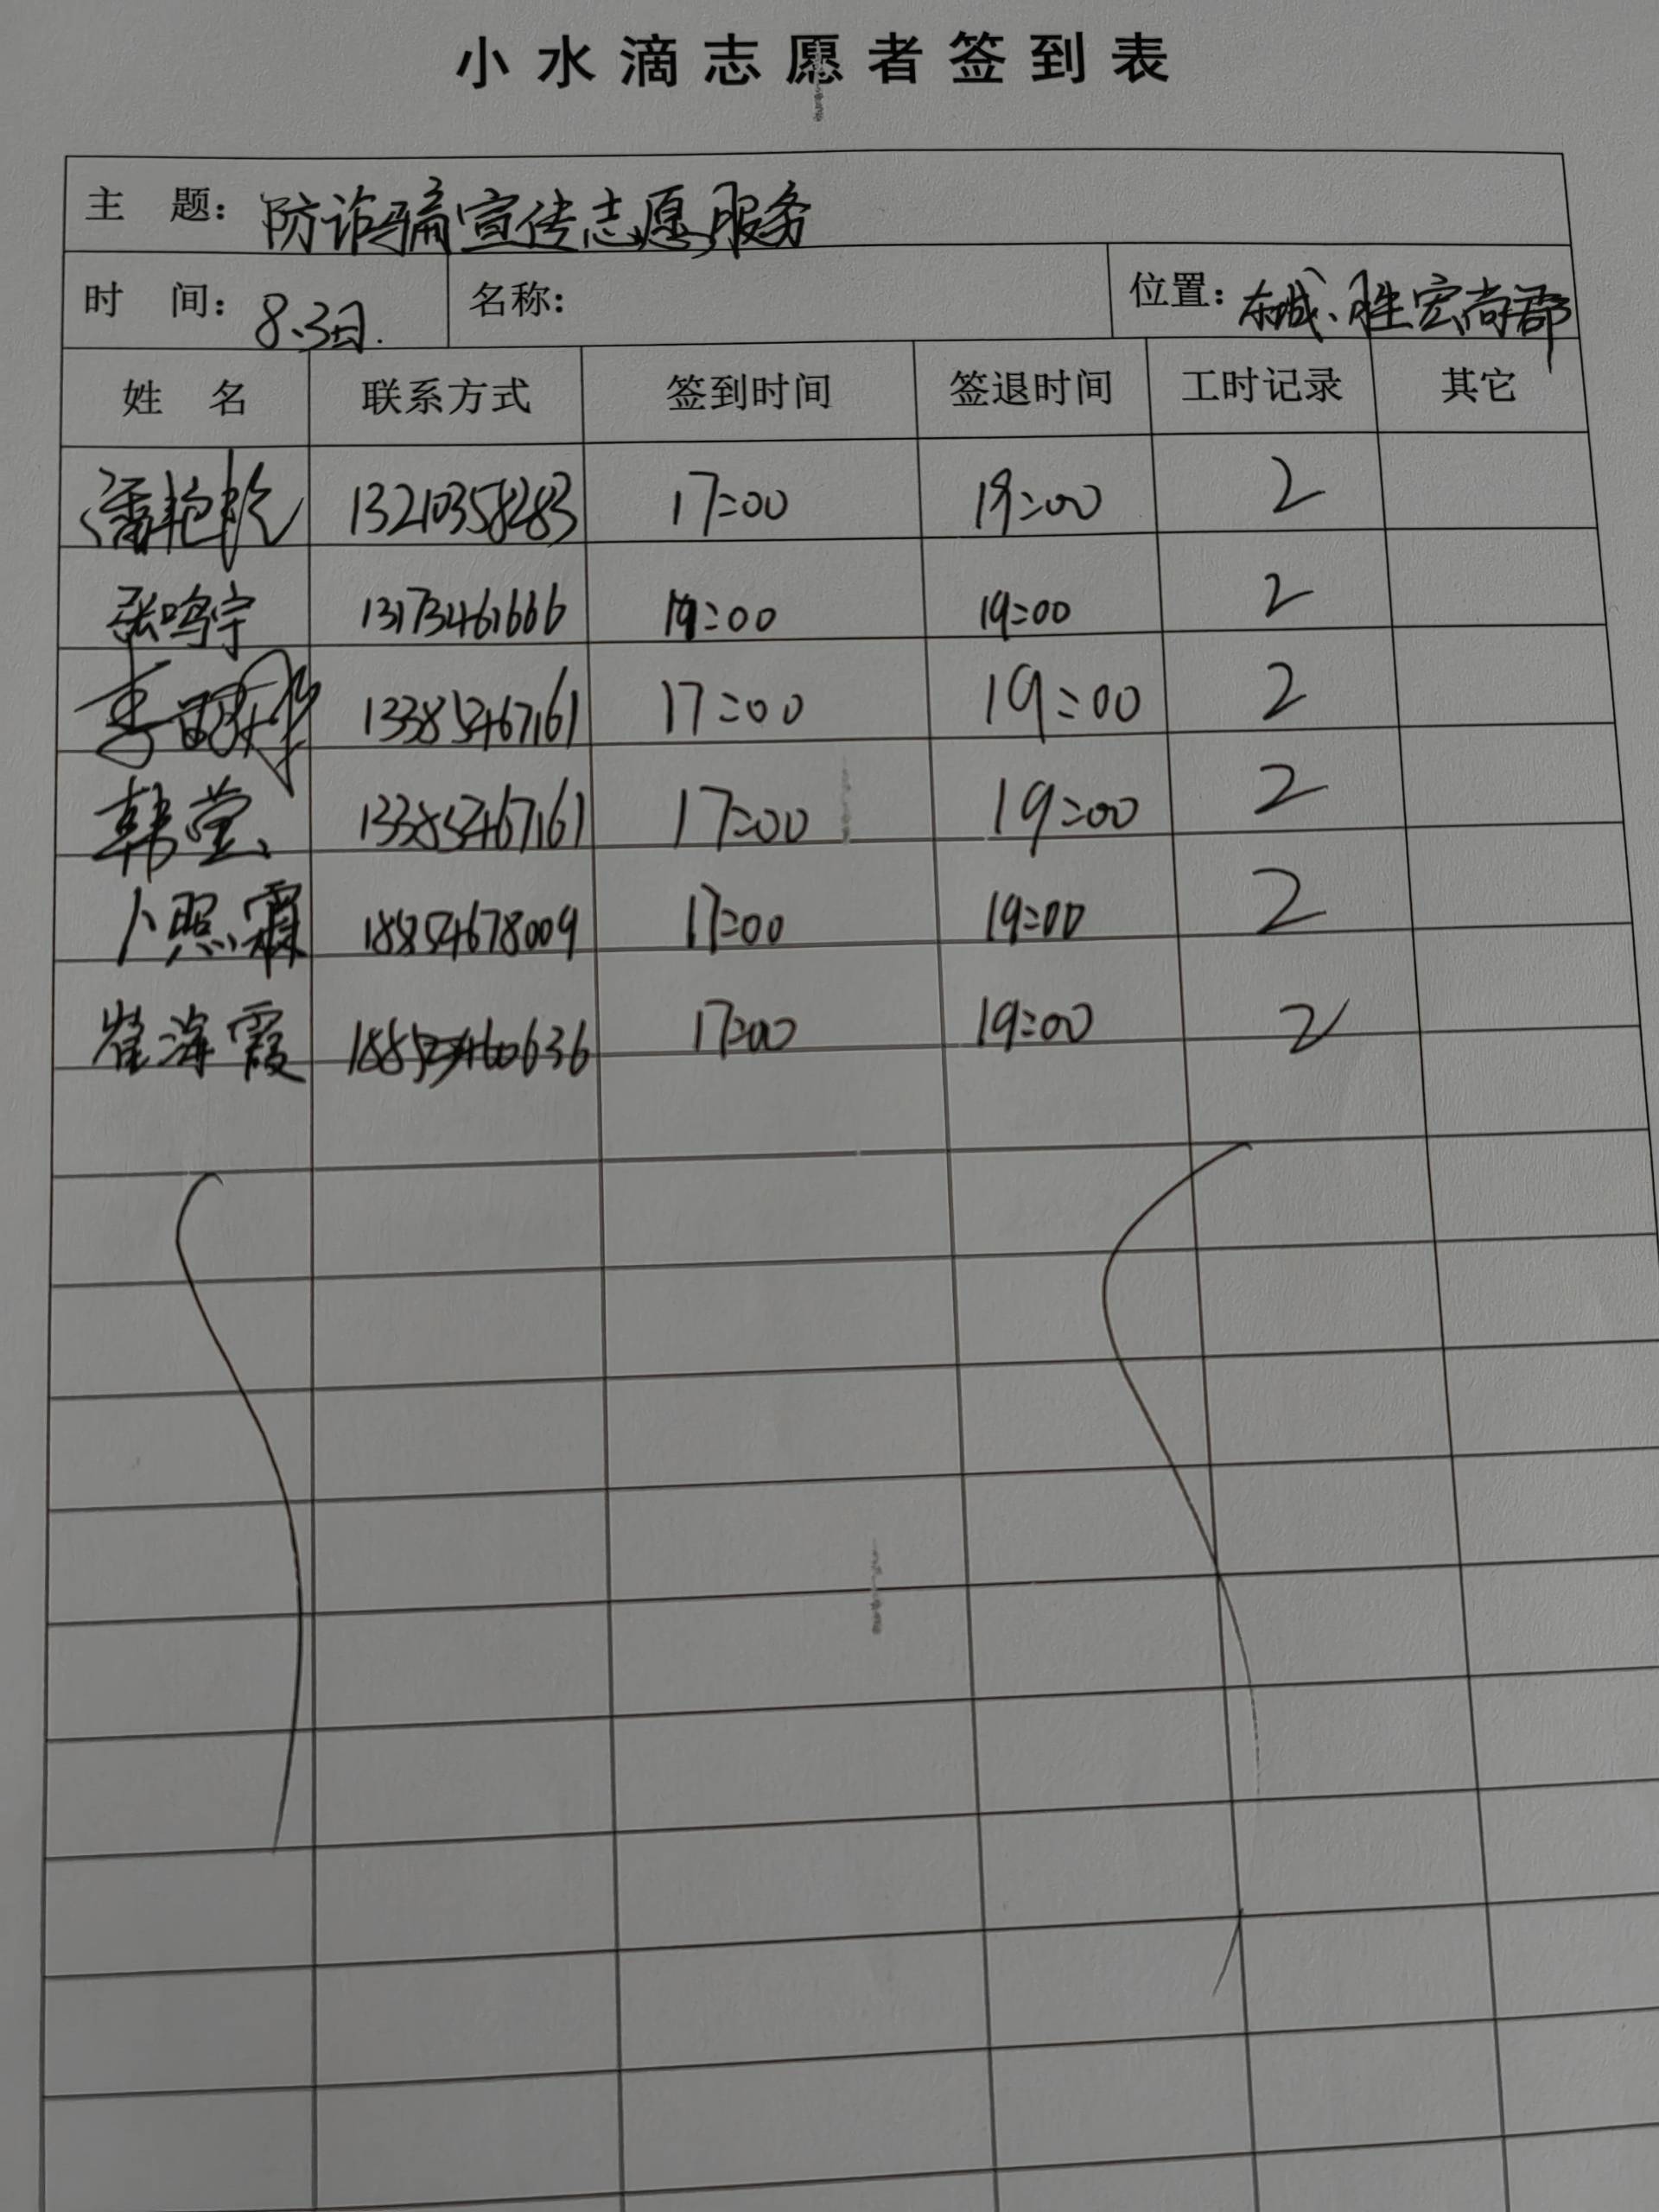 小水滴志愿者签到表
主 题： 防诈骗宣传志愿服务
时 间： 8.3日. 名称： 位置： 东城、胜宏尚郡
姓 名 联系方式 签到时间 签退时间 工时记录 其它
潘艳 13210358283 17:00 19:00 2
张鸣宇 13173461666 17:00 19:00 2
李 13385467161 17:00 19:00 2
韩莹 13385467161 17:00 19:00 2
卜照霖 18854678009 17:00 19:00 2
崔海霞 17:00 19:00 2